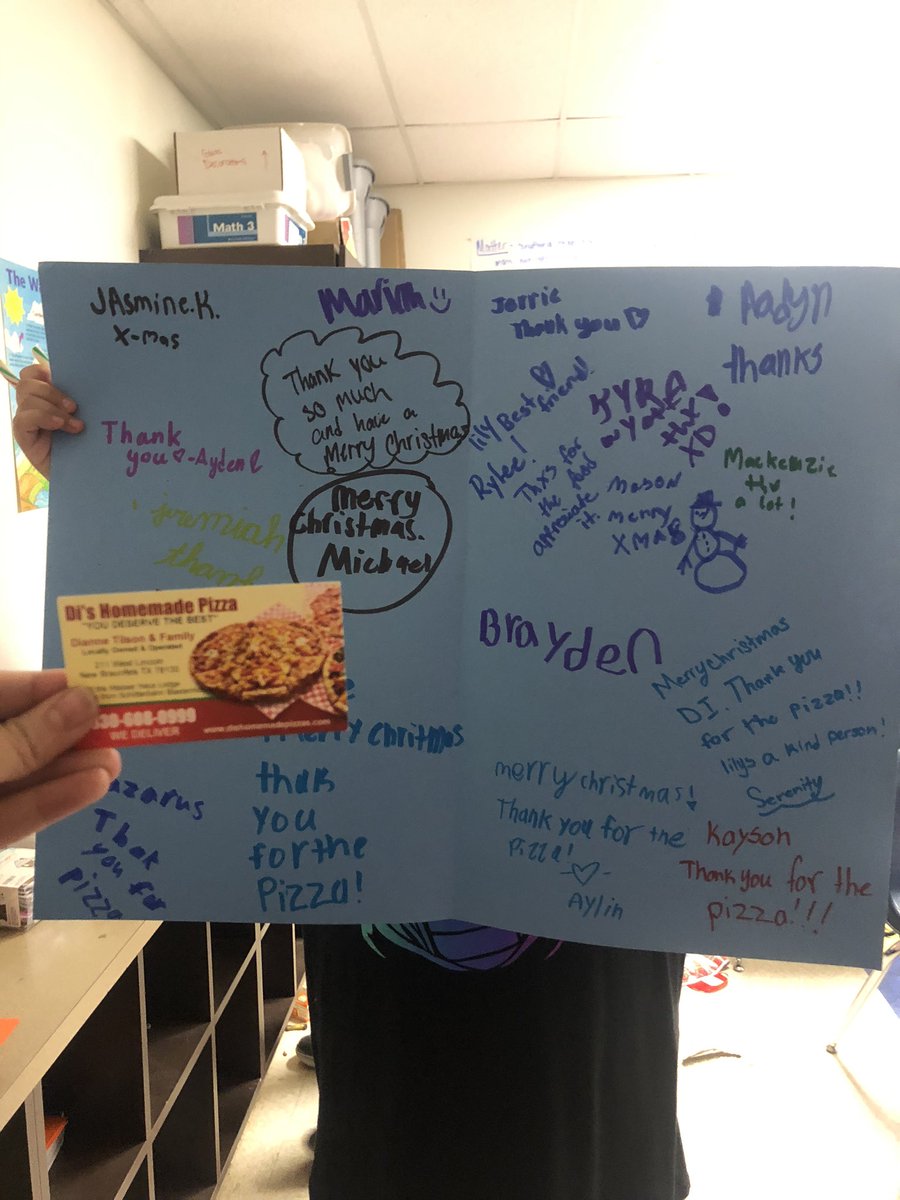 Math 3
Matter
The W
JAsmine.K.
X-mas
Mariah
Thank you
so much
and have a
Merry Christmas
Thank
you -Ayden
jeremiah
thank
merry
Christmas.
Michael
Di's Homemade Pizza
"YOU DESERVE THE BEST"
Dianne Tilson & Family
Locally Owned & Operated
211 West Lincoln
New Braunfels TX 78130
830-608-0999
WE DELIVER
www.dishomemadepizzas.com
merry chritmas
thak
you
for the
pizza!
azarus
Thak
you for
pizza
Jorrie
Thank you
Aadyn
thanks
lily Best
friend!
Rylee!
Thxs for
the
appreciate
it.
KYRA
thx
XD
Mackenzie
thx
a lot!
Mason
merry
XMAS
Brayden
Merry christmas
DI. Thank you
for the pizza!!
lilys a kind person!
Serenity
merry christmas!
Thank you for the
Pizza!
Aylin
Kayson
Thank you for the
pizza!!!